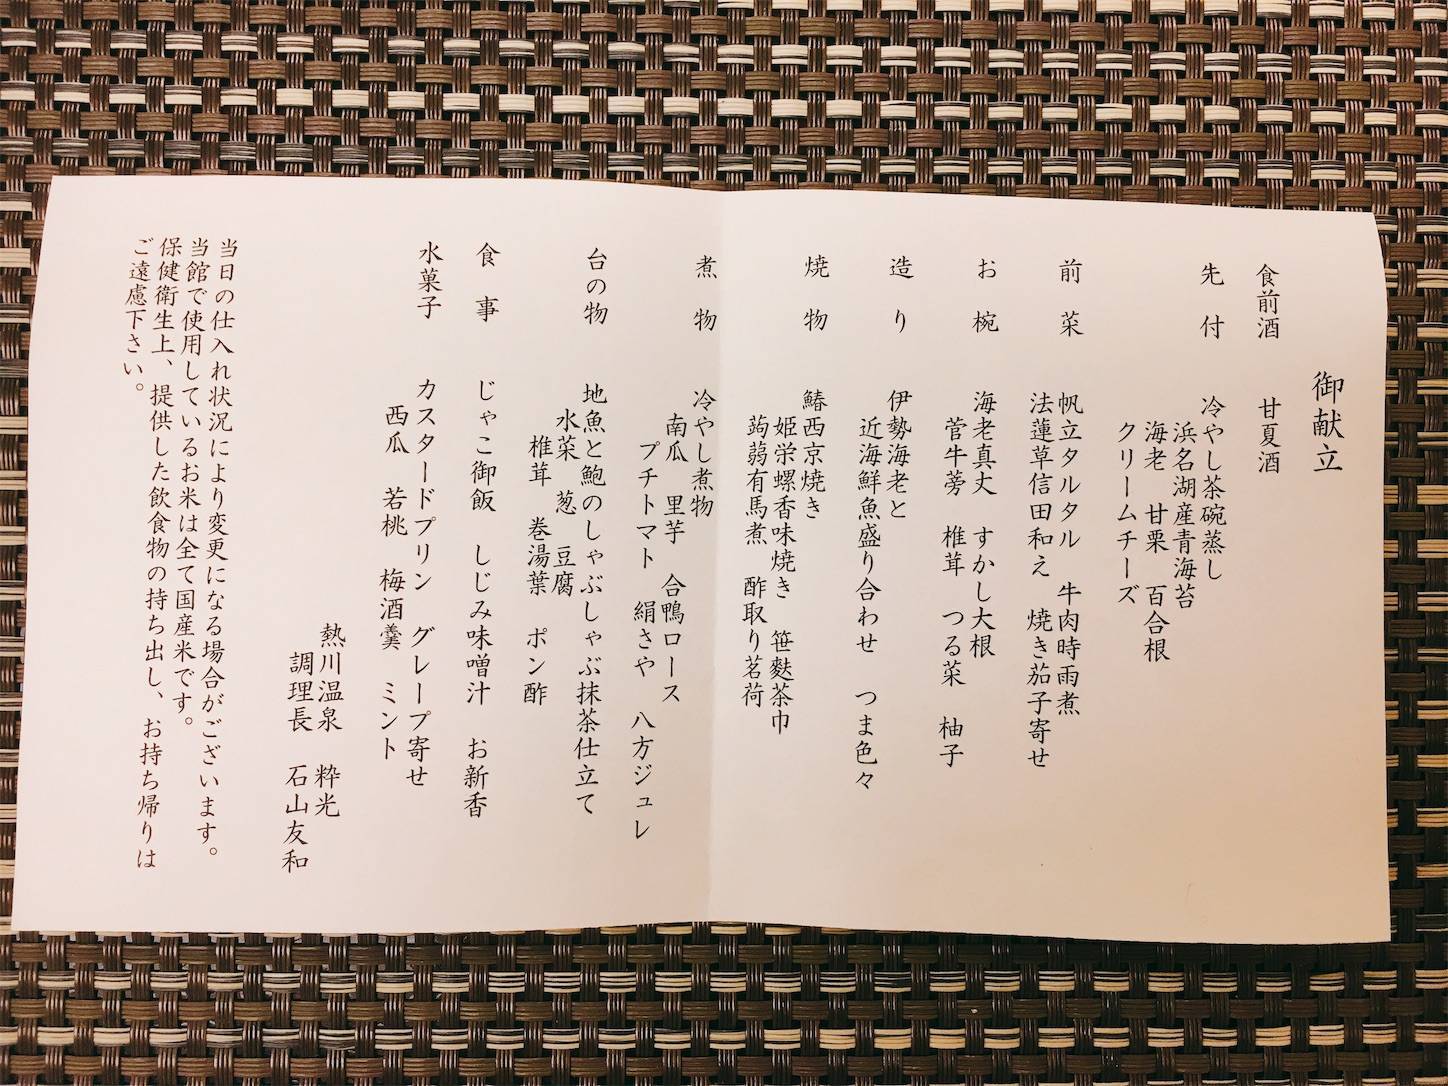 御献立
食前酒　甘夏酒
先付　冷やし茶碗蒸し
浜名湖産青海苔
海老　甘栗　百合根
クリームチーズ
前菜　帆立タルタル　牛肉時雨煮
法蓮草信田和え　焼き茄子寄せ
お椀　海老真丈　すかし大根
菅牛蒡　椎茸　つる菜　柚子
造り　伊勢海老と
近海鮮魚盛り合わせ　つま色々
焼物　鰆西京焼き
姫栄螺香味焼き　笹麩茶巾
蒟蒻有馬煮　酢取り茗荷
煮物　冷やし煮物
南瓜　里芋　合鴨ロース
プチトマト　絹さや　八方ジュレ
台の物　地魚と鮑のしゃぶしゃぶ抹茶仕立て
水菜　葱　豆腐
椎茸　巻湯葉　ポン酢
食事　じゃこ御飯　しじみ味噌汁　お新香
水菓子　カスタードプリン　グレープ寄せ
西瓜　若桃　梅酒羹　ミント
熱川温泉　粋光
調理長　石山友和
当日の仕入れ状況により変更になる場合がございます。
当館で使用しているお米は全て国産米です。
保健衛生上、提供した飲食物の持ち出し、お持ち帰りは
ご遠慮下さい。